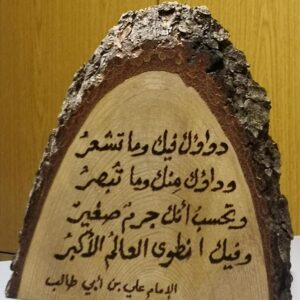 دواؤك فيك وما تشعرُ
وداؤك مِنك وما تُبصرُ
وتحسب أنك جرمٌ صغيرٌ
وفيك انطوى العالمُ الأكبرُ
الإمام علي بن أبي طالب